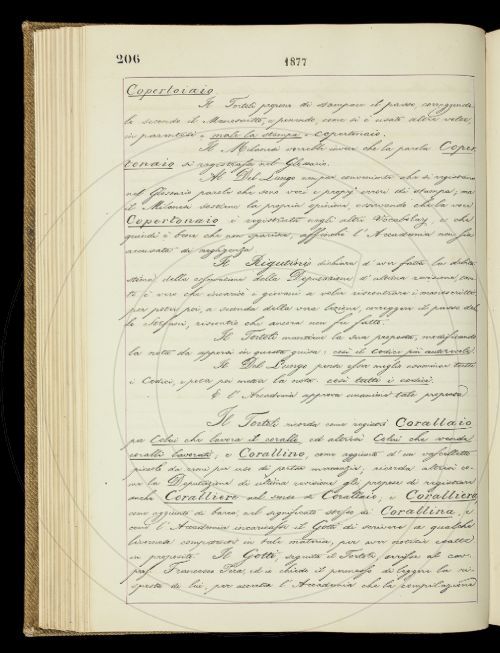 206
1877
Copertoiaio
Il Tortoli propone di stampare il passo, correggendo-
lo secondo il Manoscritto, e ponendo, come si è usato altre volte,
in parentesi: male la stampa: copertonaio.
Il Milanesi vorrebbe invece che la parola Coper-
tonaio si registrasse nel Glossario.
Al Del Lungo non par conveniente che si registrino
nel Glossario parole che sono veri e proprj errori di stampa; ma
il Milanesi sostiene la propria opinione osservando che la voce
Copertonaio è registrata negli altri Vocabolarj, e che
quindi è bene che non sparisca, affinchè l'Accademia non sia
accusata di negligenza.
Il Rigutini dichiara d'aver fatta la
della della Deputazione d'ultima revisione,
te è vero che incaricò i giovani a voler riscontrare i manoscritti
per poter poi, a seconda della vera lezione, correggere il passo del-
lo Statuto, riscontro che ancora non fu fatto.
Il Tortoli mantiene la sua proposta, modificando
la nota da apporsi in questa guisa: così il codice più autorevole.
Il Del Lungo però meglio esaminar tutti
i Codici, e poi metter la nota: così tutti i codici.
E l'Accademia approva unanime tale proposta.
Il Tortoli ricorda come registrò Corallaio
per Colui che lavora il corallo ed altresì Colui che vende
coralli lavorati; e Corallino, come aggiunto d'un vascelletto
piccolo da remi per uso di portar mercanzie, ricorda altresì co-
me la Deputazione di ultima revisione gli propose di registrare
anche Coralliere nel senso di Corallaio, e Coralliera
come aggiunto di barca nel significato stesso di Corallina, e
come l'Accademia incaricasse il Gotti di scrivere a qualche
livornese competente in tale materia, per aver notizie esatte
in proposito. Il Gotti, seguita il Tortoli, scrisse al cav.
prof. Francesco Pera, ed ei chiede il permesso di leggere la ri-
sposta di lui, per accertar l'Accademia che la compilazione